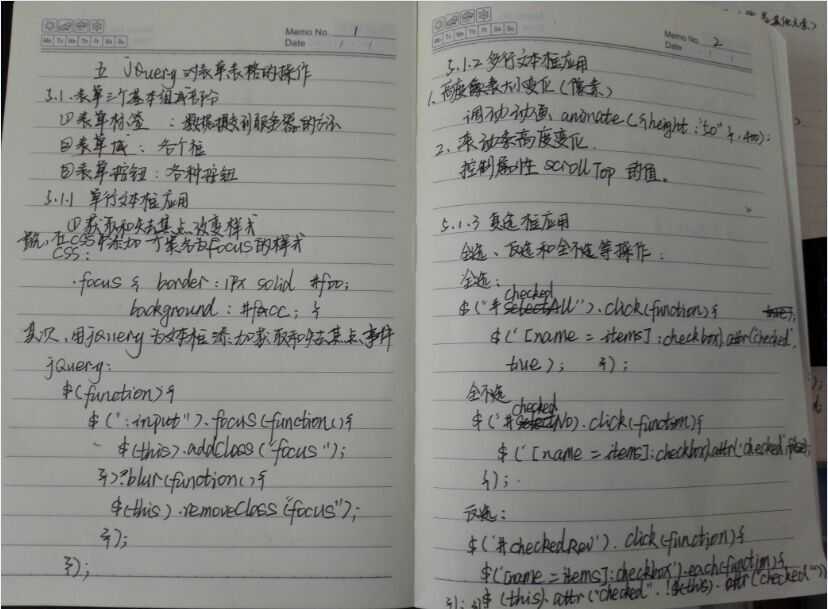 Memo No. 1
Mo Tu We Th Fr Sa Su
Date / /
五 jQuery对表单表格的操作
5.1.表单三个基本组成部分
①表单标签 : 数据提交到服务器的方法
②表单域 : 各个框
③表单按钮 : 各种按钮
5.1.1 单行文本框应用
①获取和失去焦点改变样式
首先,在CSS中添加一个类名为focus的样式
CSS:
.focus { border: 1px solid #f00;
background: #fcc; }
其次,用jQuery为文本框添加获取和失去焦点事件
jQuery:
$(function(){
$(":input").focus(function(){
$(this).addClass("focus");
}).blur(function(){
$(this).removeClass("focus");
});
});
Memo No. 2
Mo Tu We Th Fr Sa Su
Date / /
5.1.2 多行文本框应用
1.高度 大小变化(像素)
调动动画, animate({height:"50"},400);
2.滚动条高度变化.
控制属性 scrollTop 的值。
5.1.3 复选框应用
全选、反选和全不选等操作:
全选:
$("#checkedAll").click(function){
$('[name=items]:checkbox).attr('checked',
true); });
全不选
$('#checkedNo).click(function){
$('[name=items]:checkbox).attr('checked', false);
});
反选:
$('#checkedRev').click(function){
$('[name=items]:checkbox').each(function){
$(this).attr("checked", !$(this).attr("checked"))